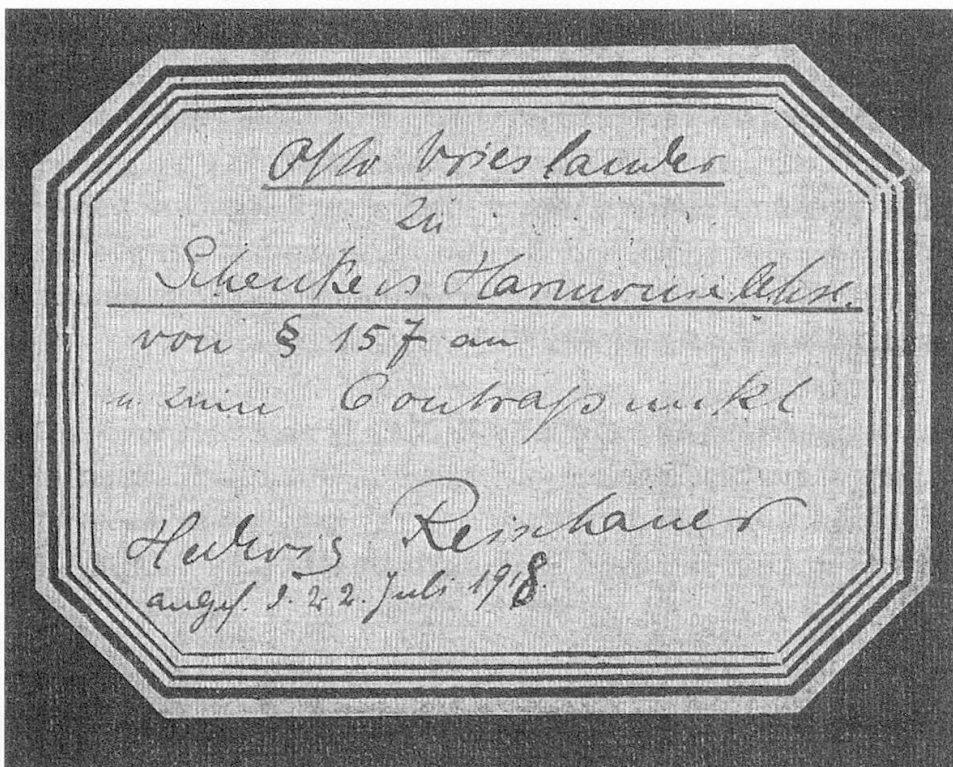 Otto Vrieslander
zu
Schenkers Harmonielehre.
von § 157 an
u. zum Contrapunkt
Hedwig Reinhauer
angef. d. 22. Juli 1918.